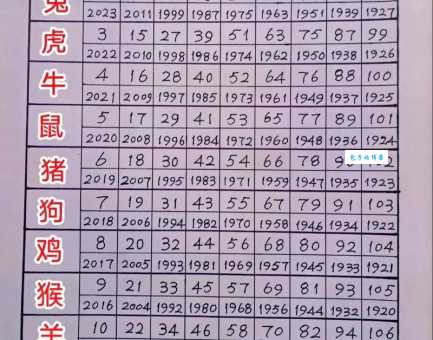 兔 2023 2011 1999 1987 1975 1963 1951 1939 1927
虎 3 15 27 39 51 63 75 87 99
2022 2010 1998 1986 1974 1962 1950 1938 1926
牛 4 16 28 40 52 64 76 88 100
2021 2009 1997 1985 1973 1961 1949 1937 1925
鼠 5 17 29 41 53 65 77 89 101
2020 2008 1996 1984 1972 1960 1948 1936 1924
猪 6 18 30 42 54 66 78
2019 2007 1995 1983 1971 1959 1947 1935 1923
狗 7 19 31 43 55 67 79 91 103
2018 2006 1994 1982 1970 1958 1946 1934 1922
鸡 8 20 32 44 56 68 80 92 104
2017 2005 1993 1981 1969 1957 1945 1933 1921
猴 9 21 33 45 57 69 81 93 105
2016 2004 1992 1980 1968 1956 1944 1932 1920
羊 10 22 34 46 58 70 82 94 106